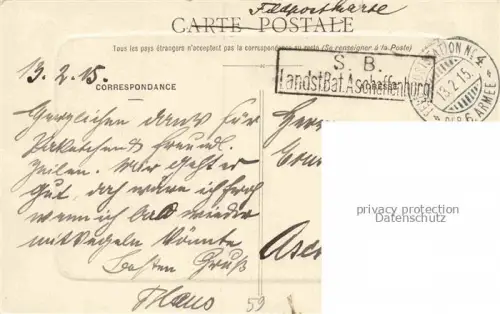 Feldpostkarte
CARTE POSTALE
Tous les pays étrangers n'acceptent pas la correspondance au recto (Se renseigner à la Poste)
13.2.15.
CORRESPONDANCE
S. B.
Landst.Bat.Aschaffenburg
13.2.15.
6. ARMEE
Herzlichen Dank für
Paketchen & freundl.
Zeilen. Mir geht es
gut, doch wäre ich froh
wenn ich bald wieder
mitkegeln könnte
Besten Gruß
Herr
Asch
privacy protection
Datenschutz
59